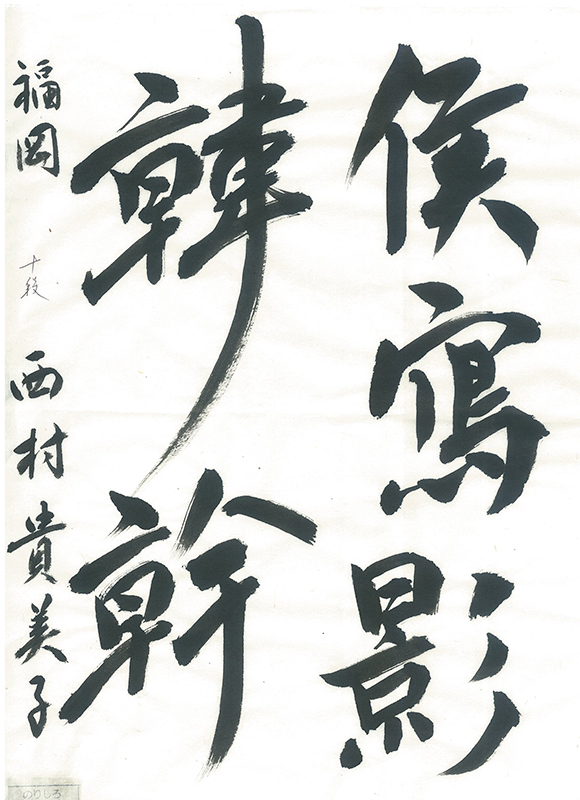 侯寫影
韓幹
福岡 十段 西村貴美子
のりしろ